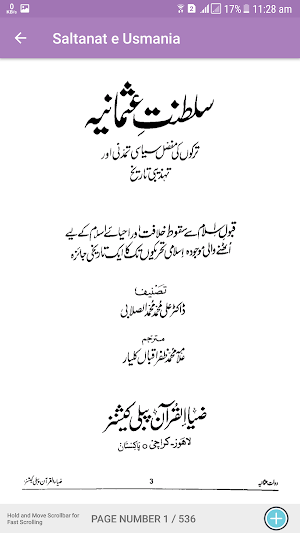 0
KB/s
17%
11:28 am
Saltanat e Usmania
سلطنتِ عثمانیہ
ترکوں کی مفصل سیاسی تمدنی اور
تہذیبی تاریخ
قبول اسلام سے سقوط خلافت اور احیائے اسلام کے لیے
اُٹھنے والی موجودہ اِسلامی تحریکوں تک کا ایک تاریخی جائزہ
تصنیف
ڈاکٹر علی محمد محمد الصلابی
مترجم
علامہ محمد ظفر اقبال کلیار
ضیاء القرآن پبلی کیشنز
لاہور - کراچی ○ پاکستان
دولت عثمانیہ
3
ضیاء القرآن پبلی کیشنز
Hold and Move Scrollbar for
Fast Scrolling
PAGE NUMBER 1 / 536